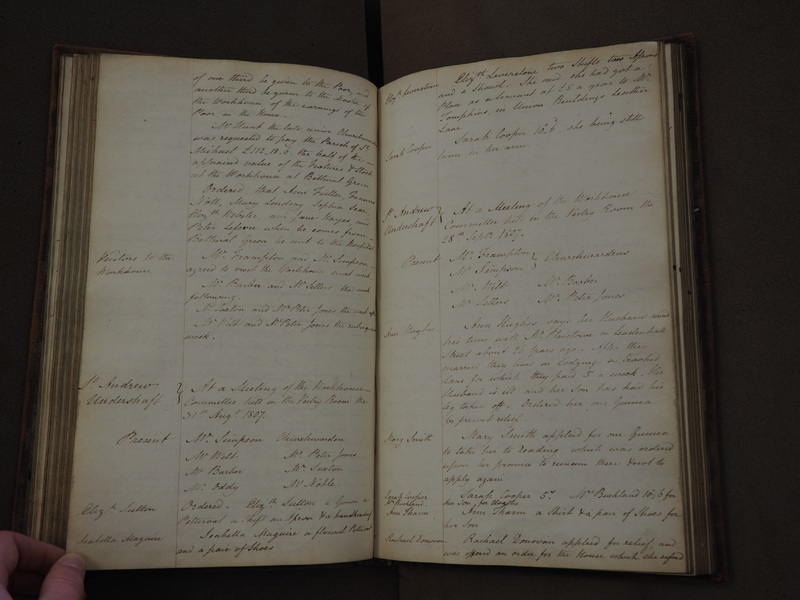 of one third be given to the Poor, and
another third be given to the Master of
the Workhouse of the earnings of the
Poor in the House.
Mr Hunt the late senior Churchwarden
was requested to pay the Parish of St
Michael £112.18.6 the half of the
appraised value of the Fixtures & Stock
at the Workhouse at Bethnal Green
Ordered that Ann Fuller, Frances
Nott, Mary Lindsay, Sophia
Elizth Webster, and Jane Hayes, and
Peter when he comes from
Bethnal green be sent to the Hospital
Visitors to the
Workhouse
Mr Frampton and Mr Simpson
agreed to visit the Workhouse next week
Mr Barber and Mr Sellers the week
following.
Mr Saxton and Mr Peter Jones the week after
Mr Witt and Mr Peter Jones the
week.
St Andrew
Undershaft
At a Meeting of the Workhouse
Committee held in the Vestry Room the
31st Augt 1807.
Present
Mr Simpson Churchwarden
Mr Witt Mr Peter Jones
Mr Barber Mr Saxton
Mr Oddy Mr Noble
Elizth Sutton
Ordered. Elizth Sutton a Gown a
Petticoat a Shift an Apron & a handkerchief
Isabella Maguire
Isabella Maguire a flannel Petticoat
and a pair of Shoes
Elizth Leverstone
Elizth Leverstone two Shifts two Aprons
and a Shawl. She said she had got a
Place as a Servant at £5 a year to Mr
Tompkins in Union Buildings Leather
Lane
Sarah Cooper
Sarah Cooper 10/6 she being still
lame in her arm.
St Andrew
Undershaft
At a Meeting of the Workhouse
Committee held in the Vestry Room the
28th Septr 1807.
Present
Mr Frampton
Mr Simpson Churchwardens
Mr Witt Mr Barber
Mr Sellers Mr Peter Jones
Ann Hughes
Ann Hughes says her Husband
his time with Mr in Leadenhall
Street about 26 Years ago. After they
married they lived in Lodging in
Lane for which they paid 5/ a week. Her
Husband is ill and her Son has had his
leg taken off. Ordered her one Guinea
for present relief.
Mary Smith
Mary Smith applied for one Guinea
to take her to Reading which was ordered
upon her promise to remain there & not to
apply again
Sarah Cooper
Mr Buckland
Sarah Cooper 5s. Mr Buckland 10/6 for
her Son, for
Ann Tharm
Ann Tharm a Shirt & a pair of Shoes for
her Son
Rachael Donovan
Rachael Donovan applied for relief, and
was offered an order for the House which she refused